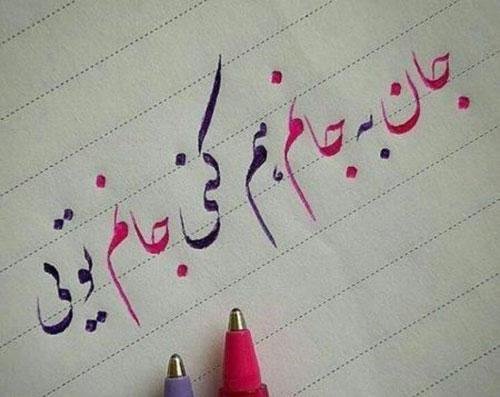 جان به جانم هم کنی جانم تویی